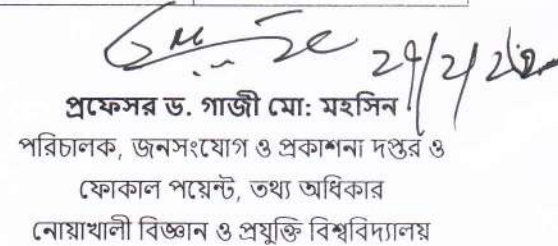 প্রফেসর ড. গাজী মো: মহসিন
পরিচালক, জনসংযোগ ও প্রকাশনা দপ্তর ও
ফোকাল পয়েন্ট, তথ্য অধিকার
নোয়াখালী বিজ্ঞান ও প্রযুক্তি বিশ্ববিদ্যালয়